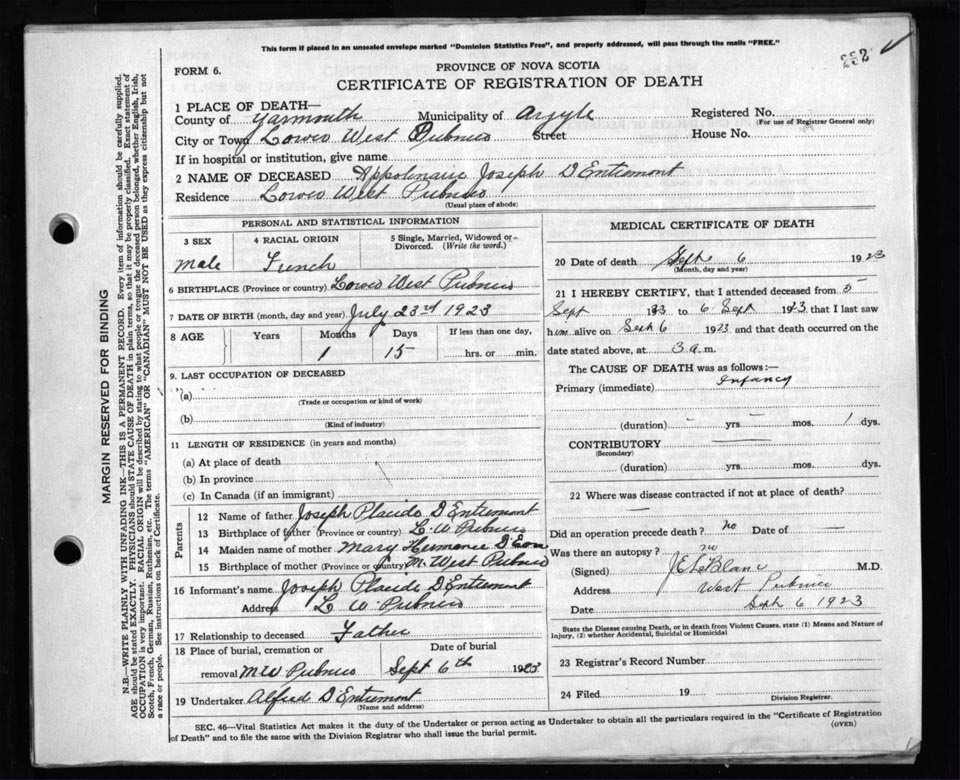 This form if placed in an unsealed envelope marked "Dominion Statistics Free", and properly addressed, will pass through the mails "FREE."
292
FORM 6.
PROVINCE OF NOVA SCOTIA
CERTIFICATE OF REGISTRATION OF DEATH
1 PLACE OF DEATH—
County of Yarmouth Municipality of Argyle Registered No.
(For use of Registrar General only)
City or Town Lower West Pubnico Street House No.
If in hospital or institution, give name
2 NAME OF DECEASED Appolinaire Joseph D'Entremont
Residence Lower West Pubnico
(Usual place of abode)
PERSONAL AND STATISTICAL INFORMATION
3 SEX 4 RACIAL ORIGIN 5 Single, Married, Widowed or Divorced. (Write the word.)
Male French
6 BIRTHPLACE (Province or country) Lower West Pubnico
7 DATE OF BIRTH (month, day and year) July 23rd 1923
8 AGE Years Months Days If less than one day,
1 15 hrs. or min.
9. LAST OCCUPATION OF DECEASED
(a)
(Trade or occupation or kind of work)
(b)
(Kind of industry)
11 LENGTH OF RESIDENCE (in years and months)
(a) At place of death
(b) In province
(c) In Canada (if an immigrant)
Parents
12 Name of father Joseph Placide D'Entremont
13 Birthplace of father (Province or country) L. W. Pubnico
14 Maiden name of mother Mary Hermance D'Eon
15 Birthplace of mother (Province or country) M. West Pubnico
16 Informant's name Joseph Placide D'Entremont
Address L W Pubnico
17 Relationship to deceased Father
18 Place of burial, cremation or Date of burial
removal M W Pubnico Sept 6th 1923
19 Undertaker Alfred D'Entremont
(Name and address)
MEDICAL CERTIFICATE OF DEATH
20 Date of death Sept 6 1923
(Month, day and year)
21 I HEREBY CERTIFY, that I attended deceased from 5
Sept 1923 to 6 Sept 1923 that I last saw
him alive on Sept 6 1923 and that death occurred on
date stated above, at 3 a.m.
The CAUSE OF DEATH was as follows:—
Primary (immediate) Infancy
(duration) - yrs. - mos. 1 dys.
CONTRIBUTORY
(Secondary)
(duration) yrs. mos. dys.
22 Where was disease contracted if not at place of death?
—
Did an operation precede death? no Date of —
Was there an autopsy? no
(Signed) J E LeBlanc M.D.
Address West Pubnico
Date Sept 6 1923
State the Disease causing Death, or in death from Violent Causes, state (1) Means and Nature of
Injury, (2) whether Accidental, Suicidal or Homicidal
23 Registrar's Record Number
24 Filed 19
Division Registrar.
SEC. 46—Vital Statistics Act makes it the duty of the Undertaker or person acting as Undertaker to obtain all the particulars required in the "Certificate of Registration
of Death" and to file the same with the Division Registrar who shall issue the burial permit.
(OVER)
MARGIN RESERVED FOR BINDING
N.B.—WRITE PLAINLY WITH UNFADING INK—THIS IS A PERMANENT RECORD. Every item of information should be carefully supplied.
AGE should be stated EXACTLY. PHYSICIANS should STATE CAUSE OF DEATH in plain terms, so that it may be properly classified. Exact statement of
OCCUPATION is very important. RACIAL ORIGIN will be described by stating to what people or tongue the deceased person belonged, whether English, Irish,
Scotch, French, German, Russian, Ruthenian, etc. The terms "AMERICAN" OR "CANADIAN" MUST NOT BE USED as they express citizenship but not
a race or people. See instructions on back of Certificate.